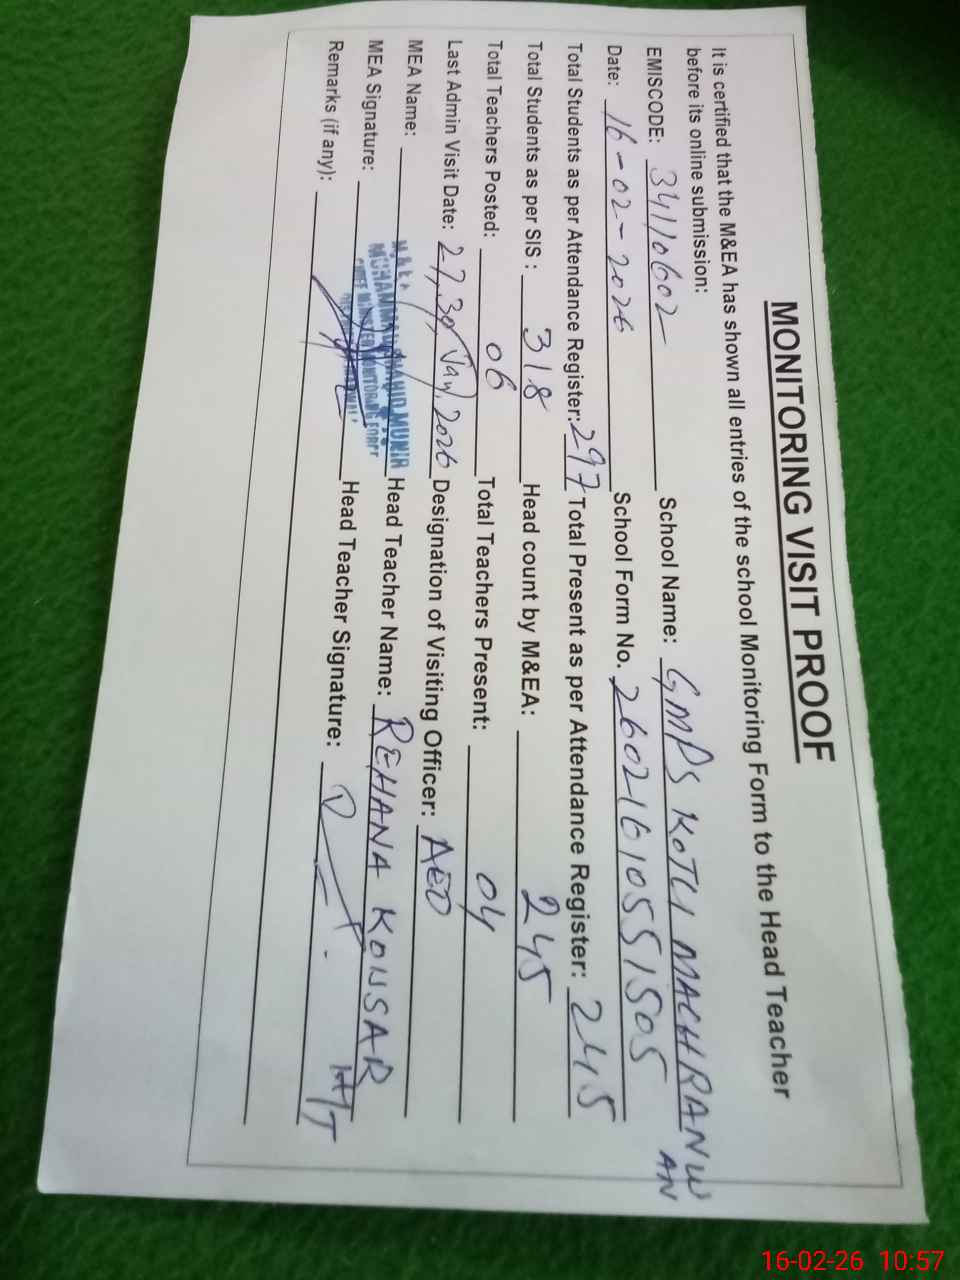 MONITORING VISIT PROOF
It is certified that the M&EA has shown all entries of the school Monitoring Form to the Head Teacher
before its online submission:
EMISCODE: 34110602 School Name: GMPS KOTLI MACHRANW
AN
Date: 16-02-2026 School Form No. 26021610551505
Total Students as per Attendance Register: 297 Total Present as per Attendance Register: 245
Total Students as per SIS : 318 Head count by M&EA: 245
Total Teachers Posted: 06 Total Teachers Present: 04
Last Admin Visit Date: 27,30, Jan, 2026 Designation of Visiting Officer: AEO
MEA Name: MUHAMMAD MUNIR Head Teacher Name: REHANA KOUSAR
MEA Signature: Head Teacher Signature: HT
Remarks (if any):
16-02-26 10:57